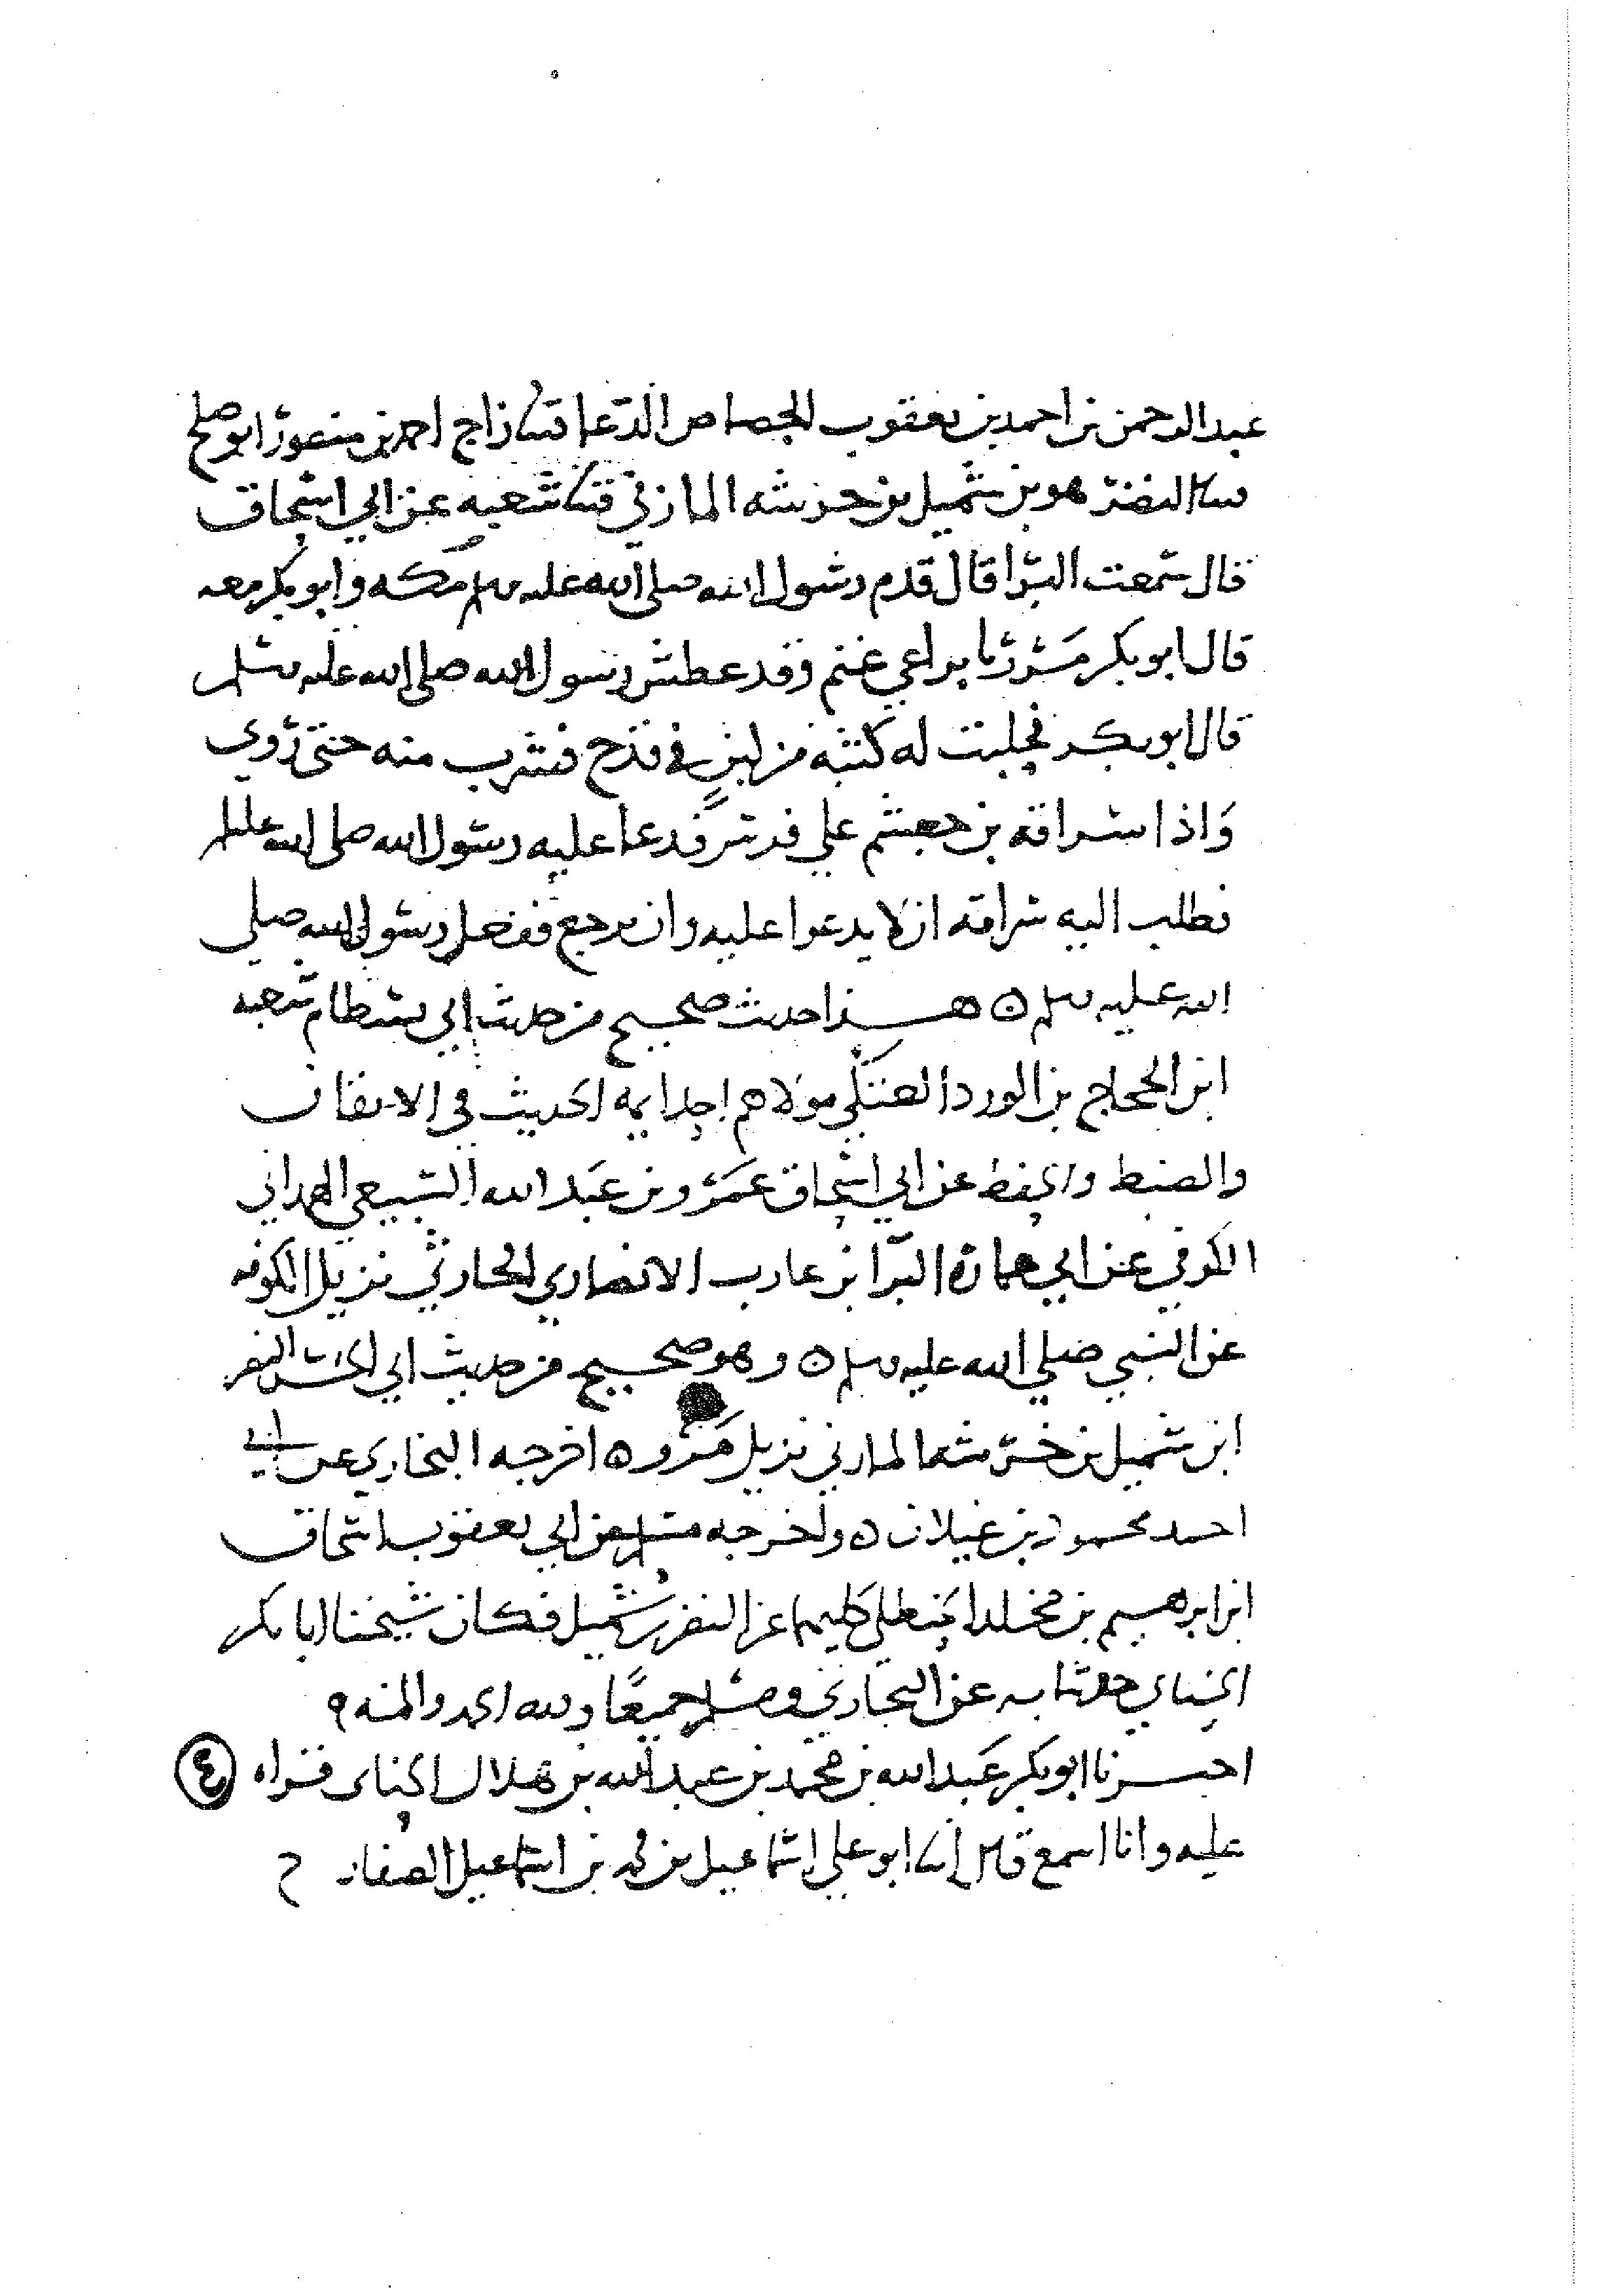 عبد الرحمن بن احمد بن يعقوب الجصاص الدعا قثنا زاج احمد بن منصور ابو صلح
ثنا النضر هو بن شميل بن خرشه المازني قثنا شعبه عن ابي اسحاق
قال سمعت البرا قال قدم رسول الله صلى الله عليه وسلم من مكه وابو بكر معه
قال ابو بكر مررنا براعي غنم وقد عطش رسول الله صلى الله عليه وسلم
قال ابو بكر فحلبت له كثبه من لبن في قدح فشرب منه حتى روي
واذا سراقه بن جعشم علي فرس فدعا عليه رسول الله صلى الله عليه
فطلب اليه سراقه ان لا يدعوا عليه وان يرجع ففعل رسول الله صلي
الله عليه وسلم ه هذا حديث صحيح من حديث ابي بسطام شعبه
ابن الحجاج بن الورد العتكي مولاهم احد ايمه الحديث في الاتقان
والضبط والحفظ عن ابي اسحاق عمرو بن عبد الله السبيعي الهمداني
الكوفي عن ابي عمارة البرا بن عازب الانصاري الحارثي نزيل الكوفه
عن النبي صلي الله عليه وسلم ه وهو صحيح من حديث ابي الحسن النضر
ابن شميل بن خرشه المازني نزيل مرو ه اخرجه البخاري عن ابي
احمد محمود بن غيلان ه واخرجه مسلم عن ابي يعقوب اسحاق
ابن ابرهيم بن مخلد الحنظلي كليهما عن النضر بن شميل فكان شيخنا ابا بكر
الحنائي حدثنا به عن البخاري ومسلم جميعًا ولله الحمد والمنه
اخبرنا ابو بكر عبد الله بن محمد بن عبد الله بن هلال الحنائي قراه ٤
عليه وانا اسمع قال انا ابو علي اسماعيل بن محمد بن اسماعيل الصفار ح